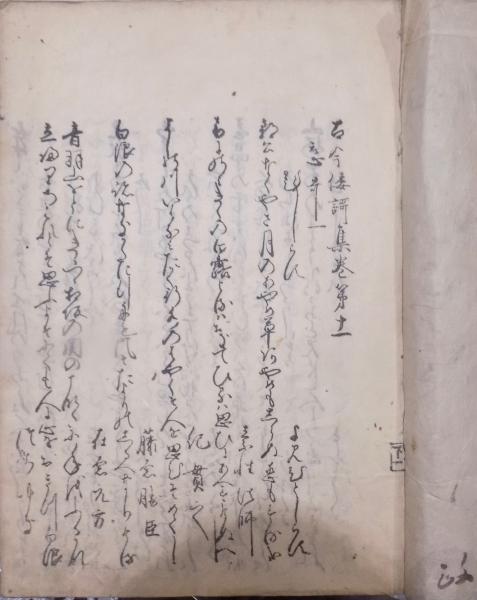 古今倭謌集巻第十一
恋哥一
題しらす
よみ人しらす
郭公なくやさ月のあやめ草あやめもしらぬ恋もする哉
素性法師
音にのみきくの白露よるはおきてひるは思ひにあへすけぬへし
紀貫之
よしの川いは浪たかく行水のはやくそ人を思ひそめてし
藤原勝臣
白浪の跡なきかたに行舟も風そたよりのしるへなりける
在原元方
音羽山をとにきゝつゝ相坂の関のこなたに年をふるかな
立帰りあはれとそ思ふよそにても人に心をおきつ白浪
つらゆき